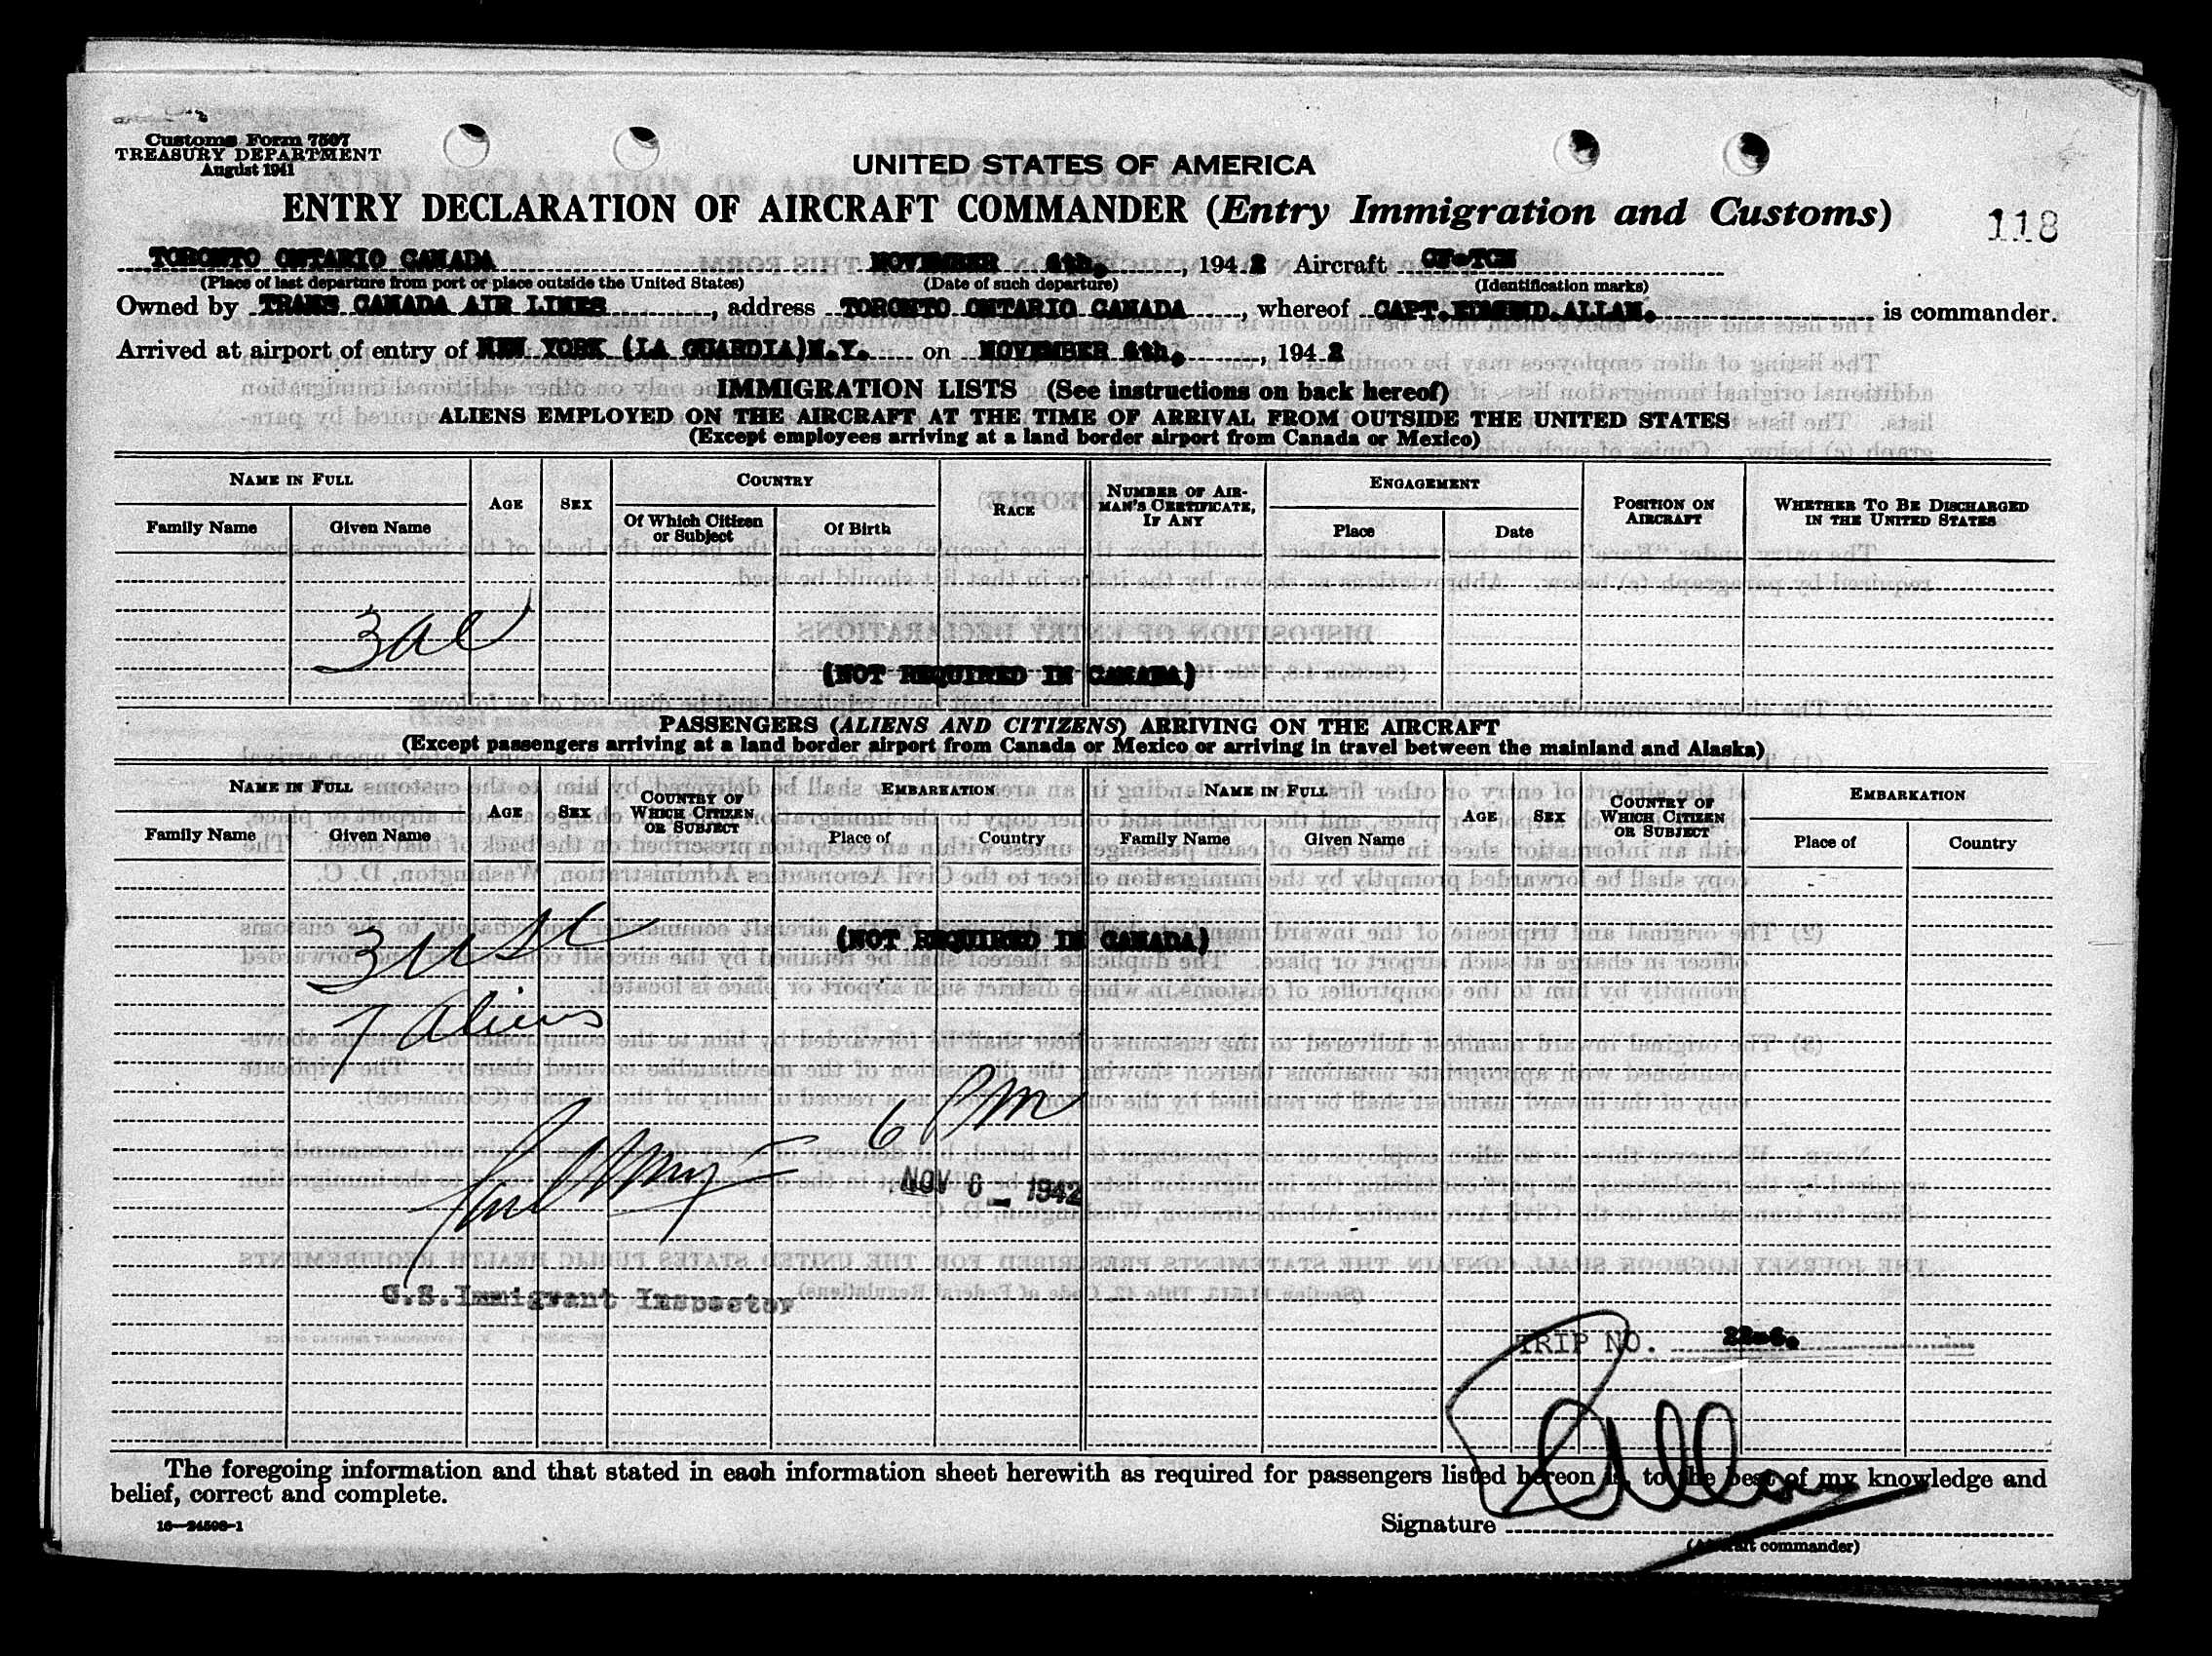 Customs Form 7507
TREASURY DEPARTMENT
August 1941
UNITED STATES OF AMERICA
ENTRY DECLARATION OF AIRCRAFT COMMANDER (Entry Immigration and Customs)
118
TORONTO ONTARIO CANADA NOVEMBER 6th., 1942 Aircraft CF-TCM
(Place of last departure from port or place outside the United States) (Date of such departure) (Identification marks)
Owned by TRANS CANADA AIR LINES, address TORONTO ONTARIO CANADA, whereof CAPT.EDMUND.ALLAN. is commander.
Arrived at airport of entry of NEW YORK (LA GUARDIA)N.Y. on NOVEMBER 6th., 1942
IMMIGRATION LISTS (See instructions on back hereof)
ALIENS EMPLOYED ON THE AIRCRAFT AT THE TIME OF ARRIVAL FROM OUTSIDE THE UNITED STATES
(Except employees arriving at a land border airport from Canada or Mexico)
NAME IN FULL AGE SEX COUNTRY RACE NUMBER OF AIRMAN'S CERTIFICATE, IF ANY ENGAGEMENT POSITION ON AIRCRAFT WHETHER TO BE DISCHARGED IN THE UNITED STATES
Family Name Given Name Of Which Citizen or Subject Of Birth Place Date
(NOT REQUIRED IN CANADA)
PASSENGERS (ALIENS AND CITIZENS) ARRIVING ON THE AIRCRAFT
(Except passengers arriving at a land border airport from Canada or Mexico or arriving in travel between the mainland and Alaska)
NAME IN FULL AGE SEX COUNTRY OF WHICH CITIZEN OR SUBJECT EMBARKATION NAME IN FULL AGE SEX COUNTRY OF WHICH CITIZEN OR SUBJECT EMBARKATION
Family Name Given Name Place of Country Family Name Given Name Place of Country
3 USC
(NOT REQUIRED IN CANADA)
7 Aliens
6 PM
NOV 6 - 1942
U.S. Immigrant Inspector
TRIP NO. 22-6.
The foregoing information and that stated in each information sheet herewith as required for passengers listed hereon is, to the best of my knowledge and
belief, correct and complete.
16—24598-1
Signature
(Aircraft commander)